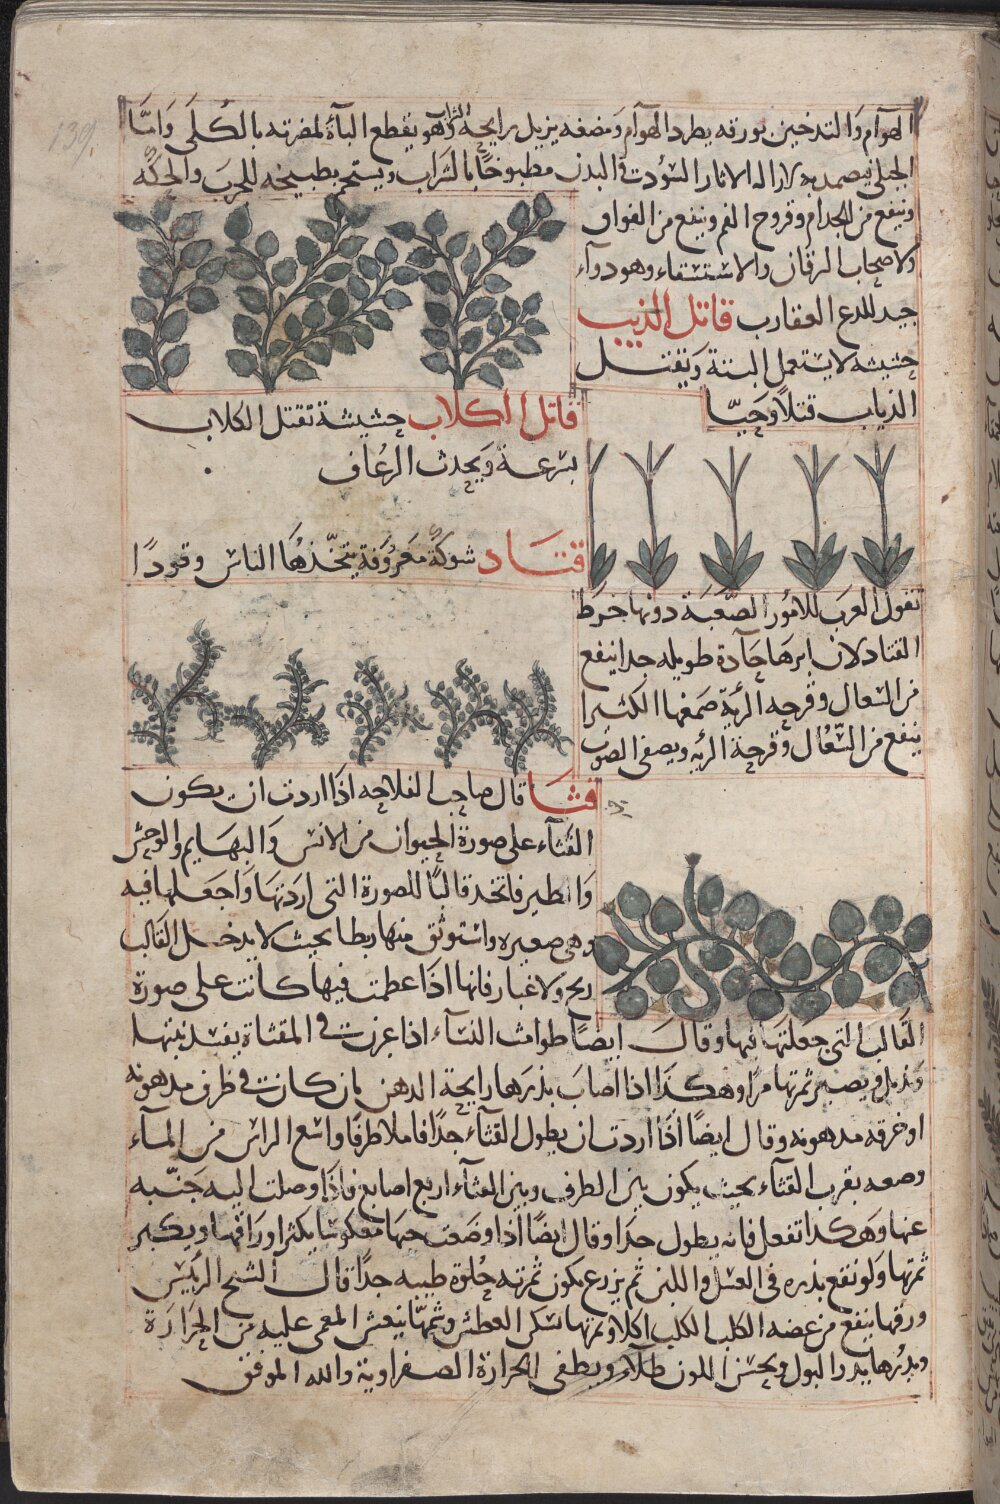 الهوام والتدخين بورقه يطرد الهوام ومضغه يزيل رايحة الشراب وهو يقطع الباة لمضرته بالكلى واما
الجبلي فيضمد به لازاله الاثار السود في البدن مطبوخا بالشراب ويستحم بطبيخه للجرب والحكة
وينفع من الجدام وقروح الفم وينفع من الفواق
ولاصحاب اليرقان والاستسقاء وهو دوآء
جيد للدع العقارب قاتل الذيب
حشيشه لا يستعمل البتة ويقتل
الذياب قتلا وحيا
قاتل الكلاب حشيشة تقتل الكلاب
بسرعة ويحدث الرعاف
قتاد شوكة معروفة يتخذها الناس وقودا
تقول العرب للامور الصعبة دونها خرط
القتاد لان ابرها حآدة طويله جدا ينفع
من السعال وقرحه الرية صمغها الكثيرا
ينفع من السعال وقرحة الريه ويصفى الصوت
قثا قال صاحب الفلاحه اذا اردت ان يكون
القثآء على صورة الحيوان من الانس والبهايم والوحش
والطير فاتخد قالبا للصورة التى اردتها واجعلها فيه
وهي صغيره واستوثق منها ربطا بحيث لا يدخل القالب
ريح ولا غبار فانها اذا عظمت فيها كانت على صورة
القالب التي جعلتها فيها وقال ايضا طوامث النسآء اذا عزت في المقثاة يفسد نبتها
ويذبل ويصير ثمرتها مرا وهكذا اذا اصاب بذرها رايحة الدهن بان كانت في ظرف مدهونه
او خرقه مدهونه وقال ايضا اذا اردت ان يطول القثآء جدا فاملا ظرفا واسع الراس من المآء
وضعه بقرب القثآء بحيث يكون بين الظرف وبين القثآء اربع اصابع فاذا وصلت اليه جنبه
عنها وهكدا تفعل فانه يطول جدا وقال ايضا اذا وضعت حبها معكوسا يكثر اوراقها ويكبر
ثمرتها ولو نقع بذره في العسل واللبن ثم يزرع يكون ثمرته حلوة طيبه جدا قال الشيخ الرئيس
ورقها ينفع من عضه الكلب الكلب اكلا وثمرتها تسكن العطش وشمها ينعش المغمى عليه من الحرارة
وبذرها يدر البول ويحسن اللون طلآء ويطفى الحرارة الصفراوية والله الموفق
139